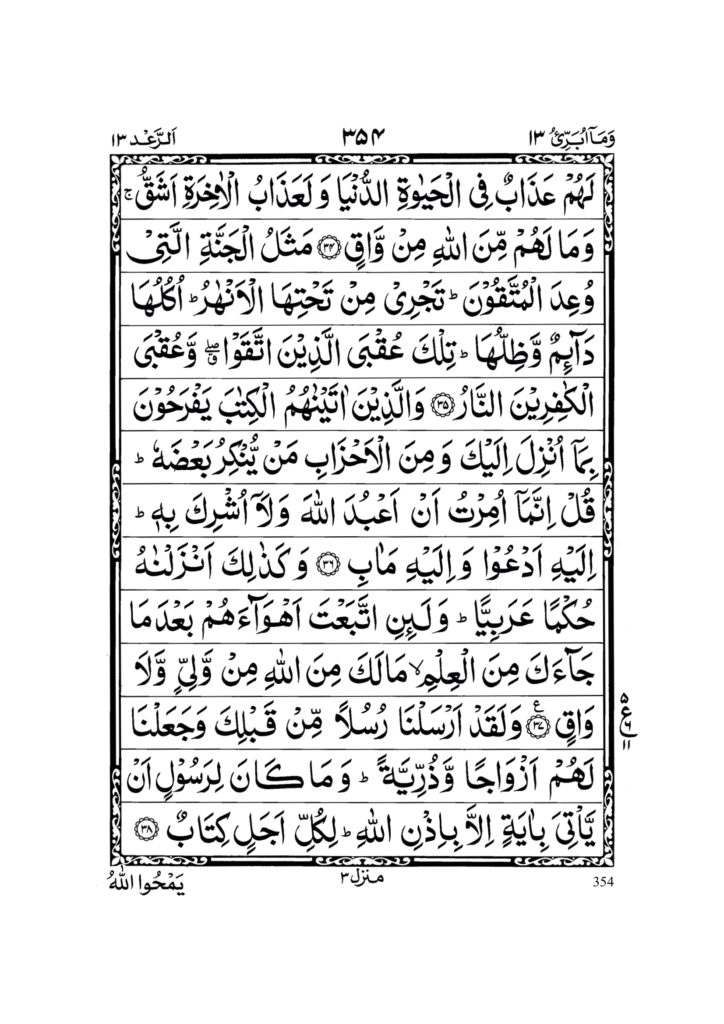 وَمَآ اُبَرِّئُ ١٣ ٣٥٤ اَلرَّعْد ١٣
لَهُمْ عَذَابٌ فِى الْحَيٰوةِ الدُّنْيَا وَ لَعَذَابُ الْاٰخِرَةِ اَشَقُّ ۚ
وَ مَا لَهُمْ مِّنَ اللّٰهِ مِنْ وَّاقٍ ﴿٣٤﴾ مَثَلُ الْجَنَّةِ الَّتِىْ
وُعِدَ الْمُتَّقُوْنَ ؕ تَجْرِىْ مِنْ تَحْتِهَا الْاَنْهٰرُ ؕ اُكُلُهَا
دَآئِمٌ وَّظِلُّهَا ؕ تِلْكَ عُقْبَى الَّذِيْنَ اتَّقَوْا ۖۗ وَّعُقْبَى
الْكٰفِرِيْنَ النَّارُ ﴿٣٥﴾ وَالَّذِيْنَ اٰتَيْنٰهُمُ الْكِتٰبَ يَفْرَحُوْنَ
بِمَآ اُنْزِلَ اِلَيْكَ وَ مِنَ الْاَحْزَابِ مَنْ يُّنْكِرُ بَعْضَهٗ ؕ
قُلْ اِنَّمَآ اُمِرْتُ اَنْ اَعْبُدَ اللّٰهَ وَلَآ اُشْرِكَ بِهٖ ؕ
اِلَيْهِ اَدْعُوْا وَ اِلَيْهِ مَاٰبِ ﴿٣٦﴾ وَ كَذٰلِكَ اَنْزَلْنٰهُ
حُكْمًا عَرَبِيًّا ؕ وَ لَئِنِ اتَّبَعْتَ اَهْوَآءَهُمْ بَعْدَ مَا
جَآءَكَ مِنَ الْعِلْمِ ۙ مَا لَكَ مِنَ اللّٰهِ مِنْ وَّلِىٍّ وَّلَا
وَاقٍ ﴿٣٧﴾ ع وَلَقَدْ اَرْسَلْنَا رُسُلًا مِّنْ قَبْلِكَ وَجَعَلْنَا
٥ ع ٦ ١١
لَهُمْ اَزْوَاجًا وَّذُرِّيَّةً ؕ وَ مَا كَانَ لِرَسُوْلٍ اَنْ
يَّاْتِىَ بِاٰيَةٍ اِلَّا بِاِذْنِ اللّٰهِ ؕ لِكُلِّ اَجَلٍ كِتَابٌ ﴿٣٨﴾
354 منزل ٣ يَمْحُوا اللّٰهُ